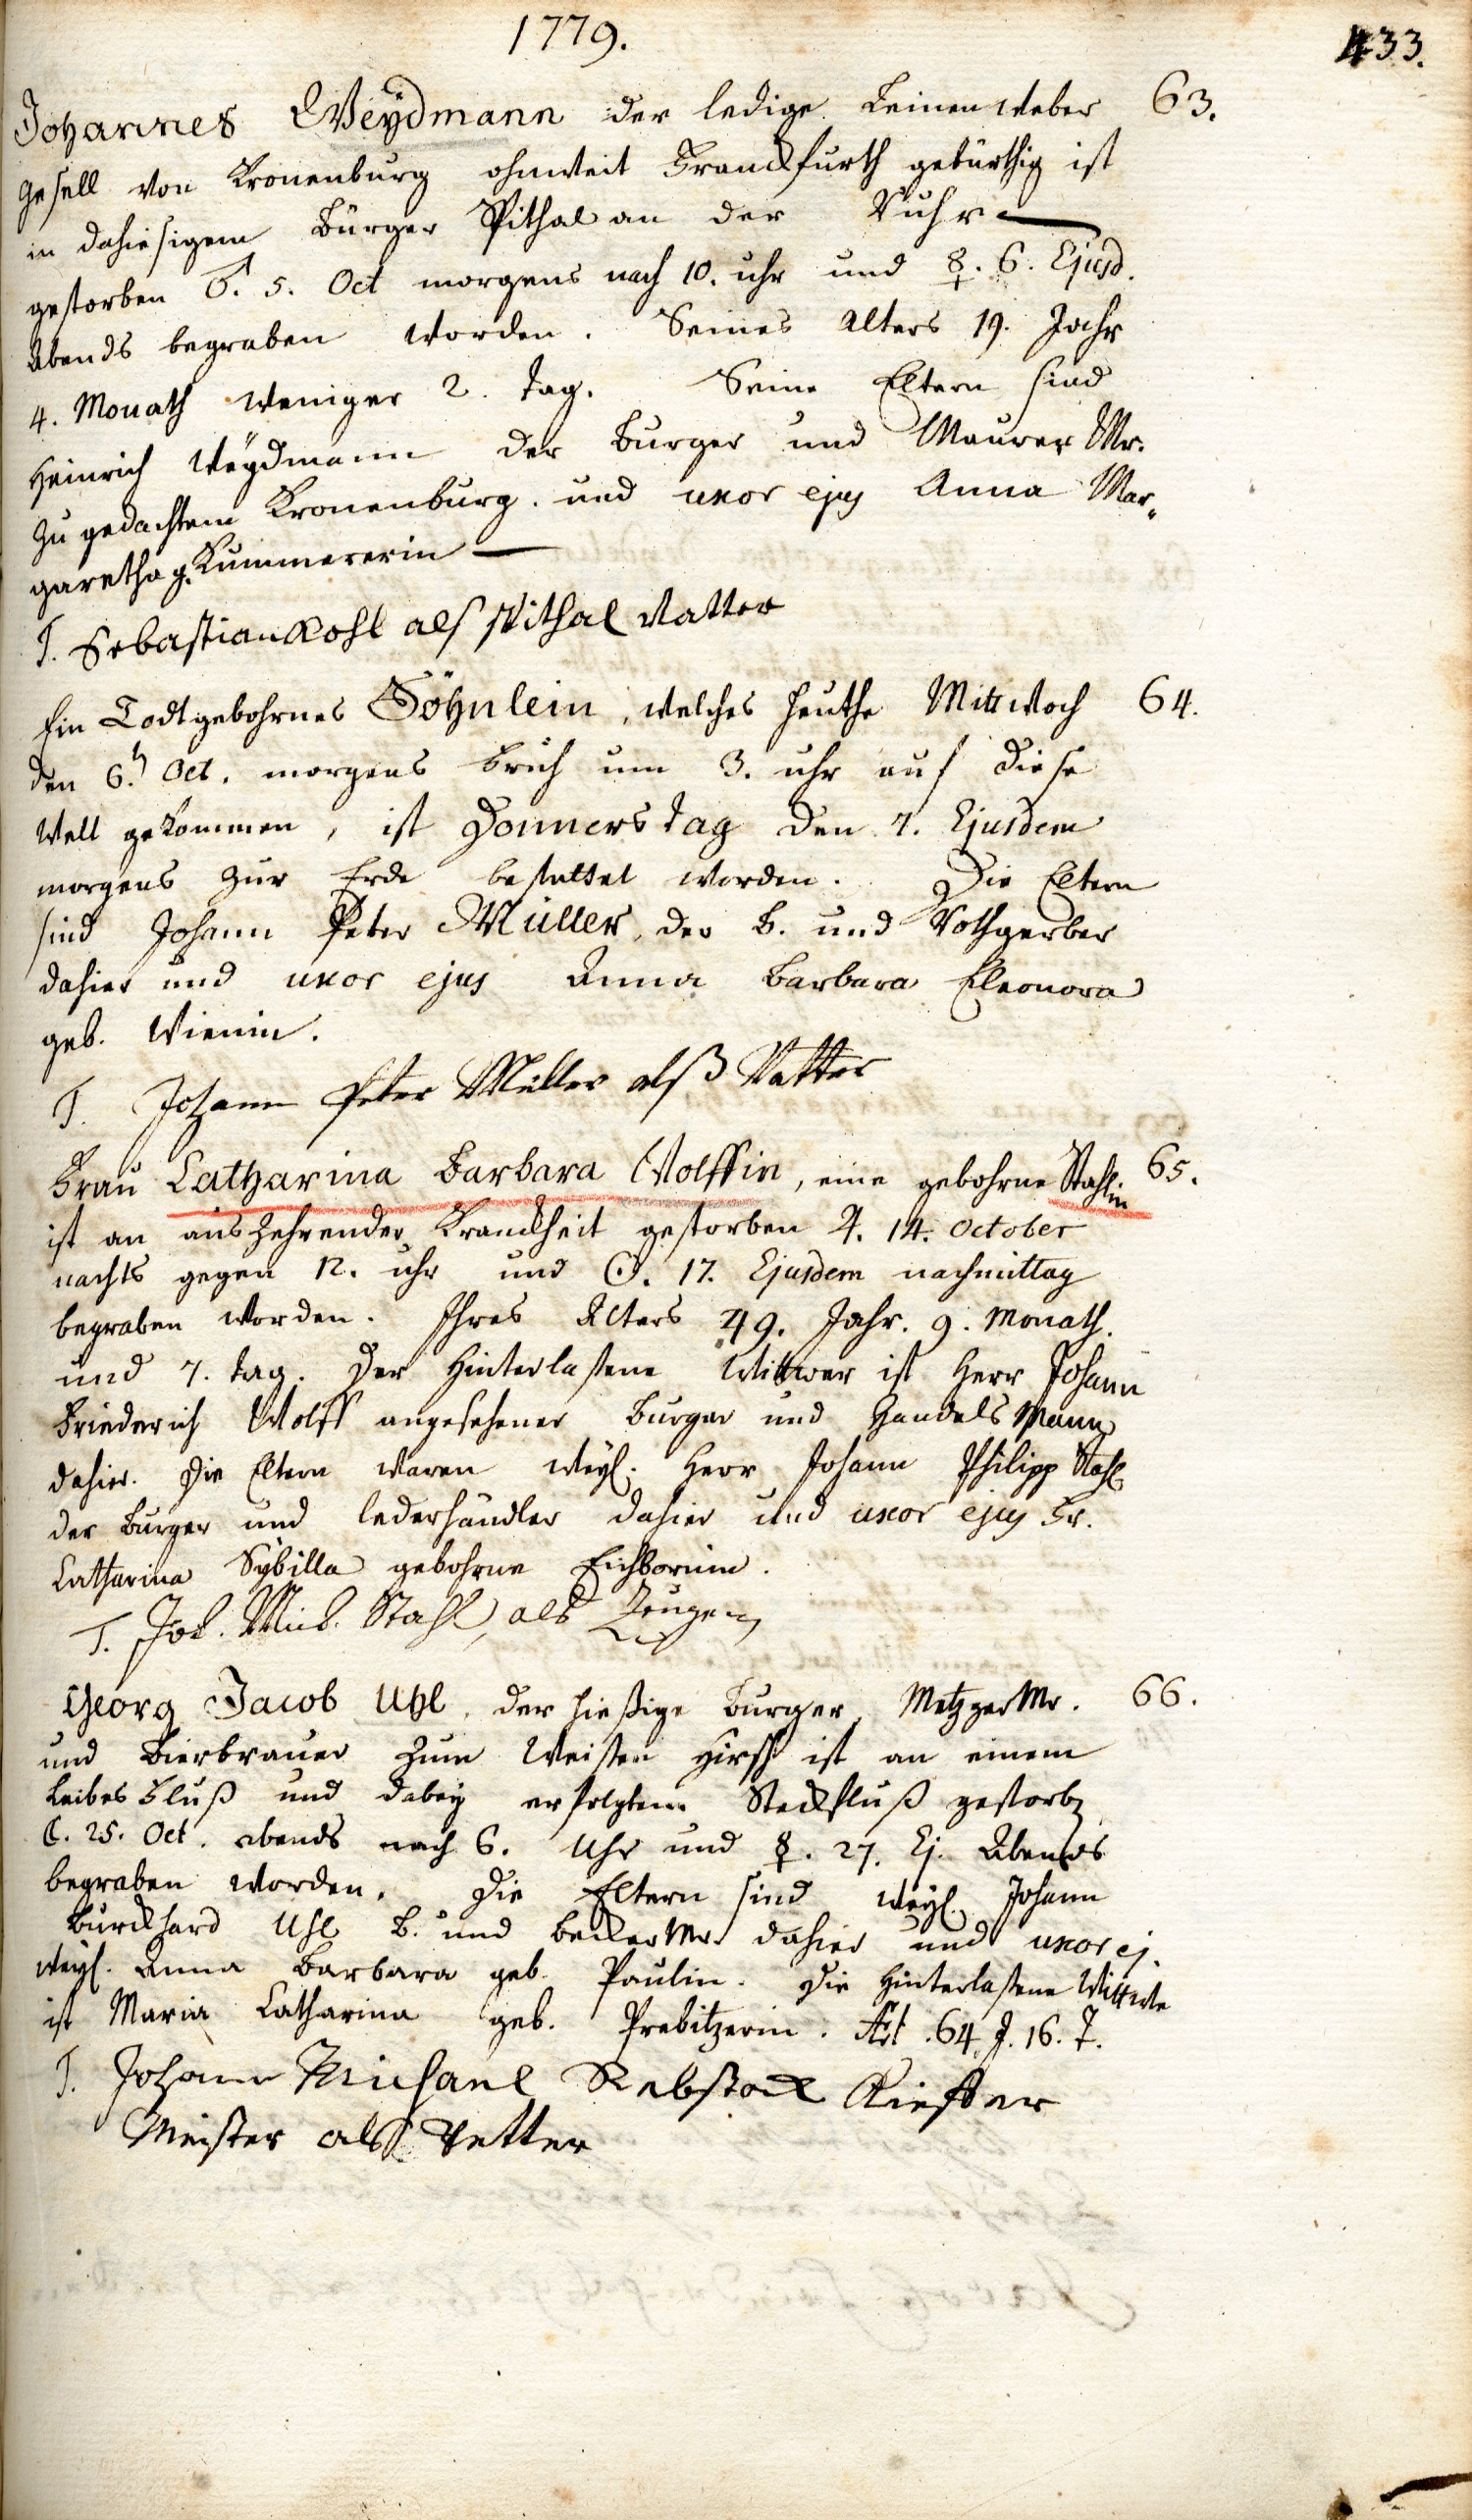 1779.
433.
Johannes Weÿdmann der ledige Leinenweber 63.
gesell von Kronenburg ohnweit Franckfurth gebürthig ist
in dahiesigem Bürger Spithal an der Ruhr
gestorben ♂. 5. Oct morgens nach 10. uhr und ☿. 6. Ejusd.
Abends begraben worden. Seines Alters 19. Jahr
4. Monath weniger 2. Tag. Seine Eltern sind
Heinrich Weÿdmann der Burger und Maurer Mr.
zu gedachtem Kronenburg. und uxor ejus Anna Mar„
garetha g. Kummererin
T. Sebastian Kohl als spithal Vatter
Ein Todtgebohrnes Söhnlein, welches heuthe Mittwoch 64.
den 6. Oct. morgens früh um 3. uhr auf diese
Welt gekommen, ist Donnerstag den 7. Ejusdem
morgens zur Erde bestattet worden. Die Eltern
sind Johann Peter Müller, der B. und Rothgerber
dahier und uxor ejus Anna Barbara Eleonora
geb. Wienin.
T. Johann Peter Müller alß Vatter
Frau Catharina Barbara Wolffin, eine gebohrne Stahlin 65.
ist an auszehrender Kranckheit gestorben ♃. 14. October
nachts gegen 12. uhr und ☉. 17. Ejusdem nachmittag
begraben worden. Ihres Alters 49. Jahr. 9. Monath.
und 7. tag. Der Hinterlaßene Wittwer ist Herr Johann
Friederich Wolff angesehener Burger und Handels Mann
dahier. Die Eltern waren weyl. Herr Johann Philipp Stahl
der Burger und lederhändler dahier und uxor ejus Fr.
Catharina Sÿbilla gebohrne Eichbornin.
T. Joh. Mich. Stahl, als Zeugen
Georg Jacob Uhl, der hießige Burger, Metzger Mr. 66.
und Bierbrauer zum Weißen Hirsch ist an einem
Leibes Fluß und dabey erfolgtem Steckfluß gestorb
☾. 25. Oct. abends nach 6. Uhr und ☿. 27. Ej. Abends
begraben worden. Die Eltern sind weyl. Johann
Burckhard Uhl B. und Becker Mr. dahier und uxor ej.
weyl. Anna Barbara geb. Paulin. Die Hinterlaßene Wittwe
ist Maria Catharina geb. Prebitzerin. Æt. 64 J. 16. T.
T. Johann Michael Rebstock Kieffer
Meister als Vetter